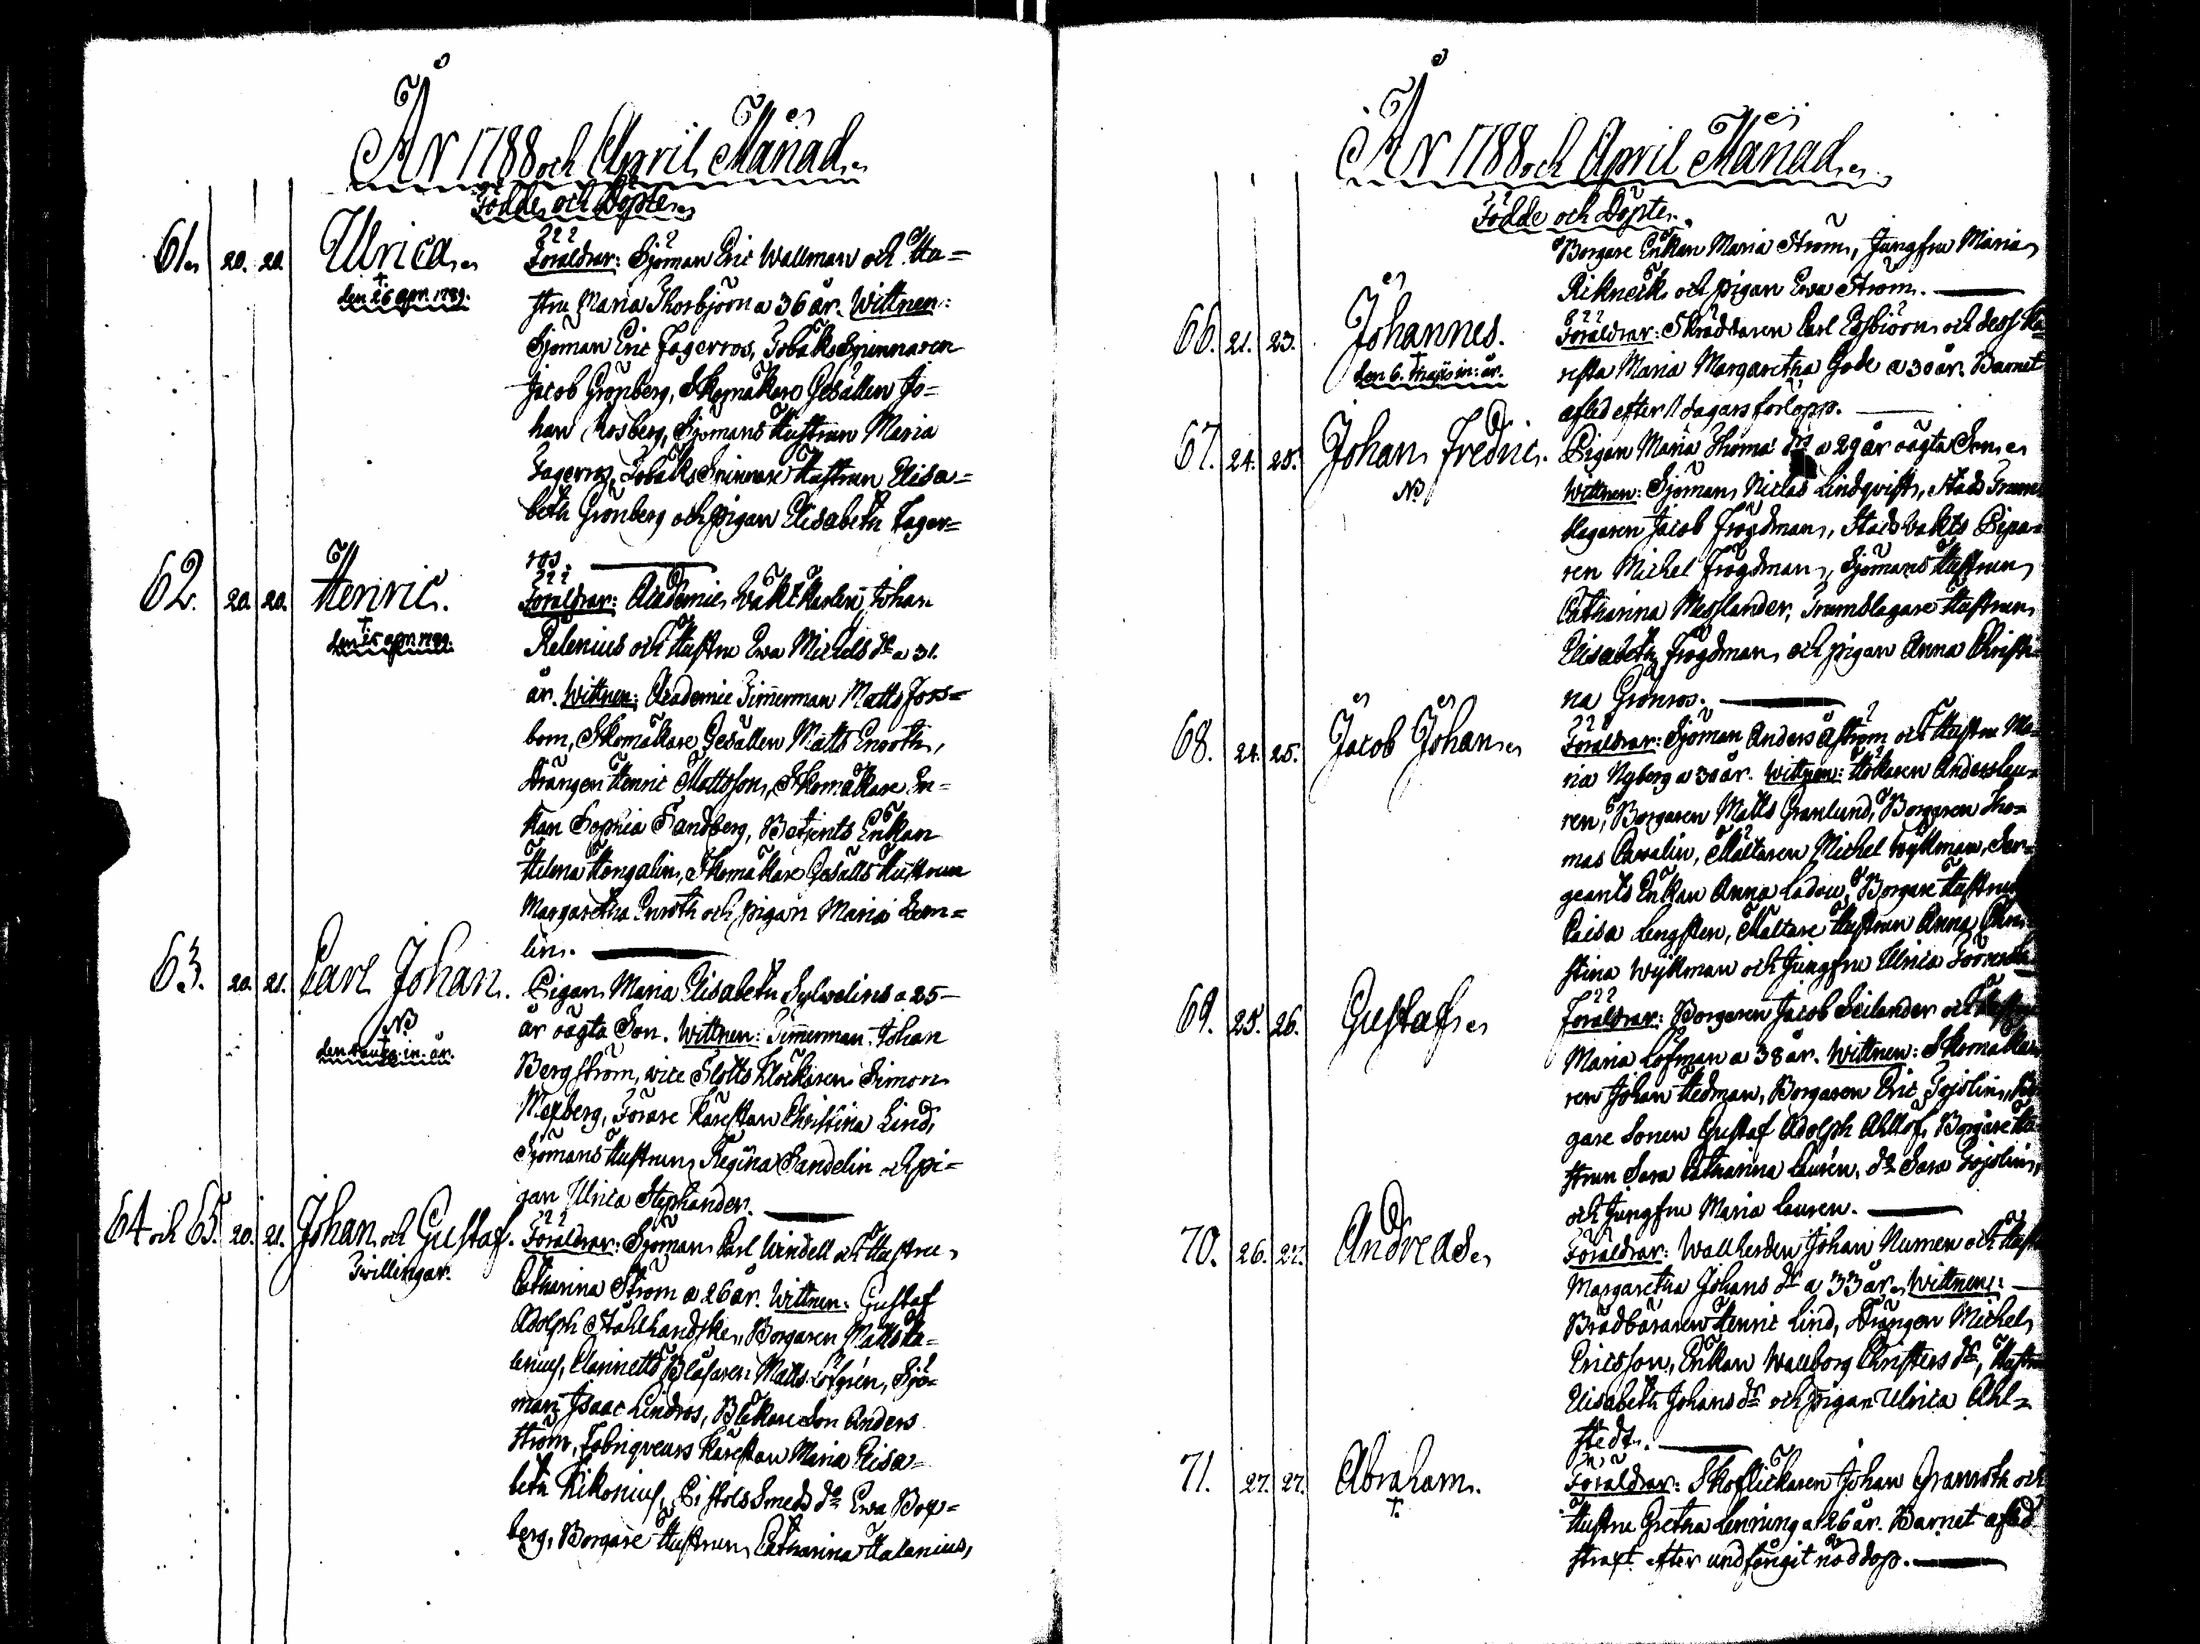 År 1788 och April Månad.
Födde och Döpte.
61. 20. 20. Ulrica.
† den 26 apr. 1789.
Föräldrar: Sjöman Eric Wallman och Hu=
stru Maria Thorbjörn a 36 år. Wittnen:
Sjöman Eric Fagerros, Tobaks Spinnaren
Jacob Grönberg, Skomakare Gesällen Jo=
han Rosberg, Sjömans Hustrun Maria
Fagerros, Tobaks Spinnare Hustrun Elisa=
beth Grönberg och Pigan Elisabeth Fager=
ros.
62. 20. 20. Henric.
† den 15 apr. 1789.
Föräldrar: Academie Wakt Karlen Johan
Relenius och Hustru Ewa Michels dr a 31.
år. Wittnen: Academie Timerman Matts Fors=
bom, Skomakare Gesällen Matts Enroth,
Drängen Henric Mattsson, Skomakare En=
kan Sophia Sandberg, Betjents Enkan
Helena Hongalin, Skomakare Gesälls Hustrun
Margaretha Enroth och pigan Maria Lem=
lin.
63. 20. 21. Carl Johan.
NB
in. år.
Pigan Maria Elisabeth Sylvalins a 25
år oägta Son. Wittnen: Timerman Johan
Bergström, vice Slotts Klockaren Simon
Wexberg, Förare Kärestan Christina Lind,
Sjömans Hustrun Regina Sandelin och pi=
gan Ulrica Stephander.
64 och 65. 20. 21. Johan och Gustaf.
Twillingar.
Föräldrar: Sjöman Carl Windell och Hustru
Catharina Ström a 26 år. Wittnen: Gustaf
Adolph Stålhandske, Borgaren Matts Ha=
lenius, Clarinetts Blåsaren Matts Löfgrén, Sjö=
man Isaac Lindros, Blekare Son Anders
Ström, Fabriqveurs Kärestan Maria Elisa=
beth Rikonius, Pistols Smeds do Ewa Box=
berg, Borgare Hustrun Catharina Halanius,
År 1788 och April Månad.
Födde och Döpte.
Borgare Enkan Maria Ström, Jungfru Maria
Rikneck och pigan Ewa Ström.
66. 21. 23. Johannes.
† den 6. Maji in. år.
Föräldrar: Skräddaren Carl Essbiörn och dess Kä
resta Maria Margaretha Gode a 30 år. Barnet
afled efter 11 dagars förlopp.
67. 24. 25. Johan Fredric.
NB
Pigan Maria Thoma drs a 29 år oägta Son
Wittnen: Sjöman Niclas Lindqvist, Stads Trum
slagaren Jacob Frögdman, Stads Wakts Pipa=
ren Michel Frögdman, Sjömans Hustrun
Catharina Messlander, Trumslagare Hustrun
Elisabeth Frögdman och pigan Anna Christi
na Grönros.
68. 24. 25. Jacob Johan
Föräldrar: Sjöman Anders Åström och Hustru Ma
ria Nyberg a 30 år. Wittnen: Hökaren Anders Lau=
ren, Borgaren Matts Granlund, Borgaren Tho=
mas Cavalin, Mältaren Michel Wykman, Ser=
geants Enkan Anna Ladou, Borgare Hustrun
Caisa Lengsten, Mältare Hustrun Anna Chri
stina Wykman och Jungfru Ulrica
69. 25. 26. Gustaf
Föräldrar: Borgaren Jacob Seilander och
Maria Löfman a 38 år. Wittnen: Skomaka
ren Johan Hedman, Borgaren Eric Tojolin,
gare Sonen Gustaf Adolph Ahllöf, Borgare Hu
strun Sara Catharina Laurén, do Sara Tojolin,
och Jungfru Maria Lauren.
70. 26. 27. Andreas
Föräldrar: Wallherden Johan Numen och Hust
Margaretha Johans dr a 33 år. Wittnen:
Brädbäraren Henric Lind, Drängen Michel
Ericsson, Enkan Wallborg Christers dr, Hustru
Elisabeth Johans dr och pigan Ulrica Ahl=
stedt.
71. 27. 27. Abraham.
†
Föräldrar: Skoflickaren Johan Granroth och
Hustru Gretha Lenning a 26 år. Barnet afled
straxt efter undfångit nöddop.